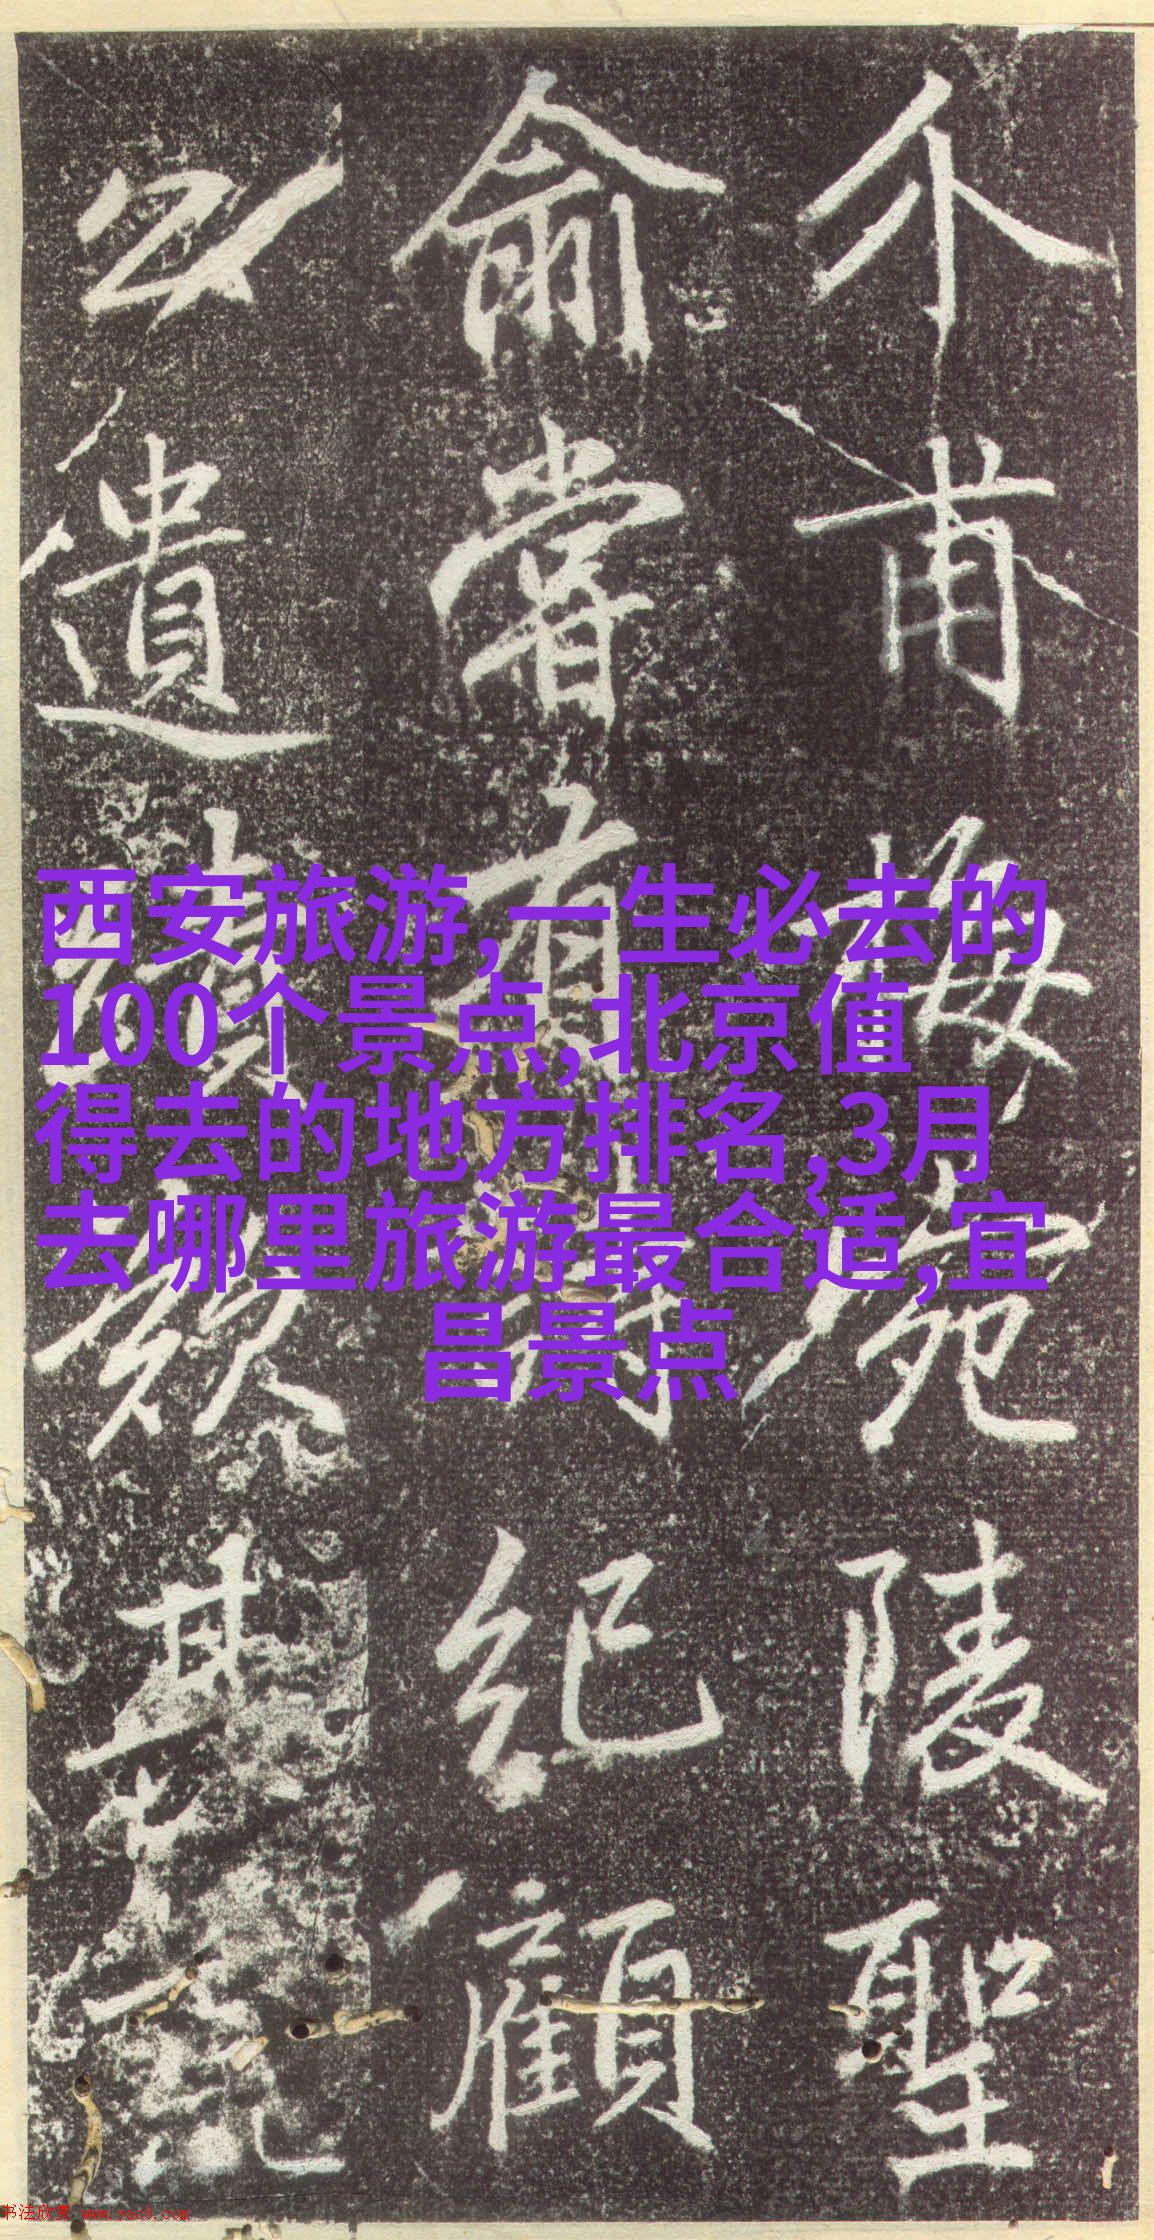 介甫梅宛陵聖
俞嘗有詩紀顧
公遺蹟数其
西安旅游,一生必去的
100个景点,北京值
得去的地方排名,3月
去哪里旅游最合适,宜
昌景点
书法欣赏 www.yac8.com